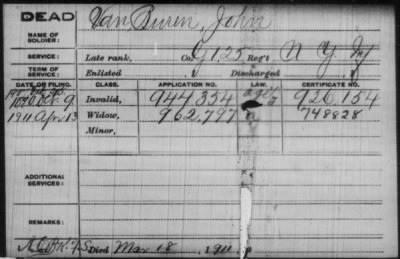 DEAD
Van Buren, John
NAME OF SOLDIER:
SERVICE: Late rank, Co. G 125 Reg't N Y Inf
TERM OF SERVICE: Enlisted , Discharged ,
DATE OF FILING. CLASS. APPLICATION NO. LAW. CERTIFICATE NO.
Oct. 9 Invalid, 944354 926.154
1911 Apr 13 Widow, 962,797 748828
Minor,
ADDITIONAL SERVICES:
REMARKS:
Died Mar 18, 1911